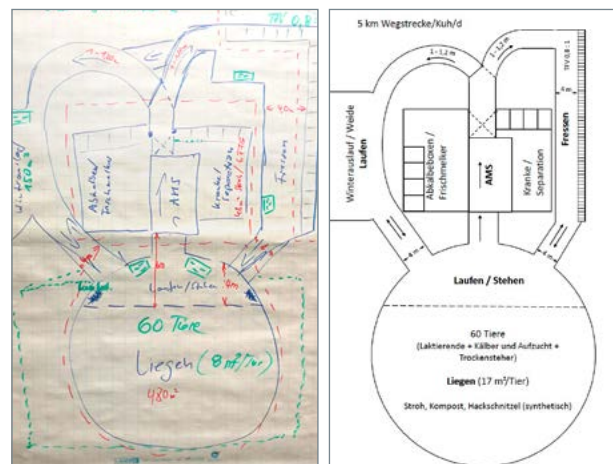 TFV 0,8:1
1-1,20m
Winterauslauf/
150m²
Abkalbe/
Frischmelker
AMS
Kranke/
Separation
Fressen
4m
Laufen/Stehen
60 Tiere
Liegen (8 m²/Tier)
480m²
5 km Wegstrecke/Kuh/d
1 - 1,2 m
1 - 1,2 m
TFV 0,8 : 1
4 m
Winterauslauf / Weide
Laufen
Abkalbeboxen /
Frischmelker
AMS
Kranke /
Separation
Fressen
4 m
4 m
Laufen / Stehen
60 Tiere
(Laktierende + Kälber und Aufzucht +
Trockensteher)
Liegen (17 m²/Tier)
Stroh, Kompost, Hackschnitzel (synthetisch)